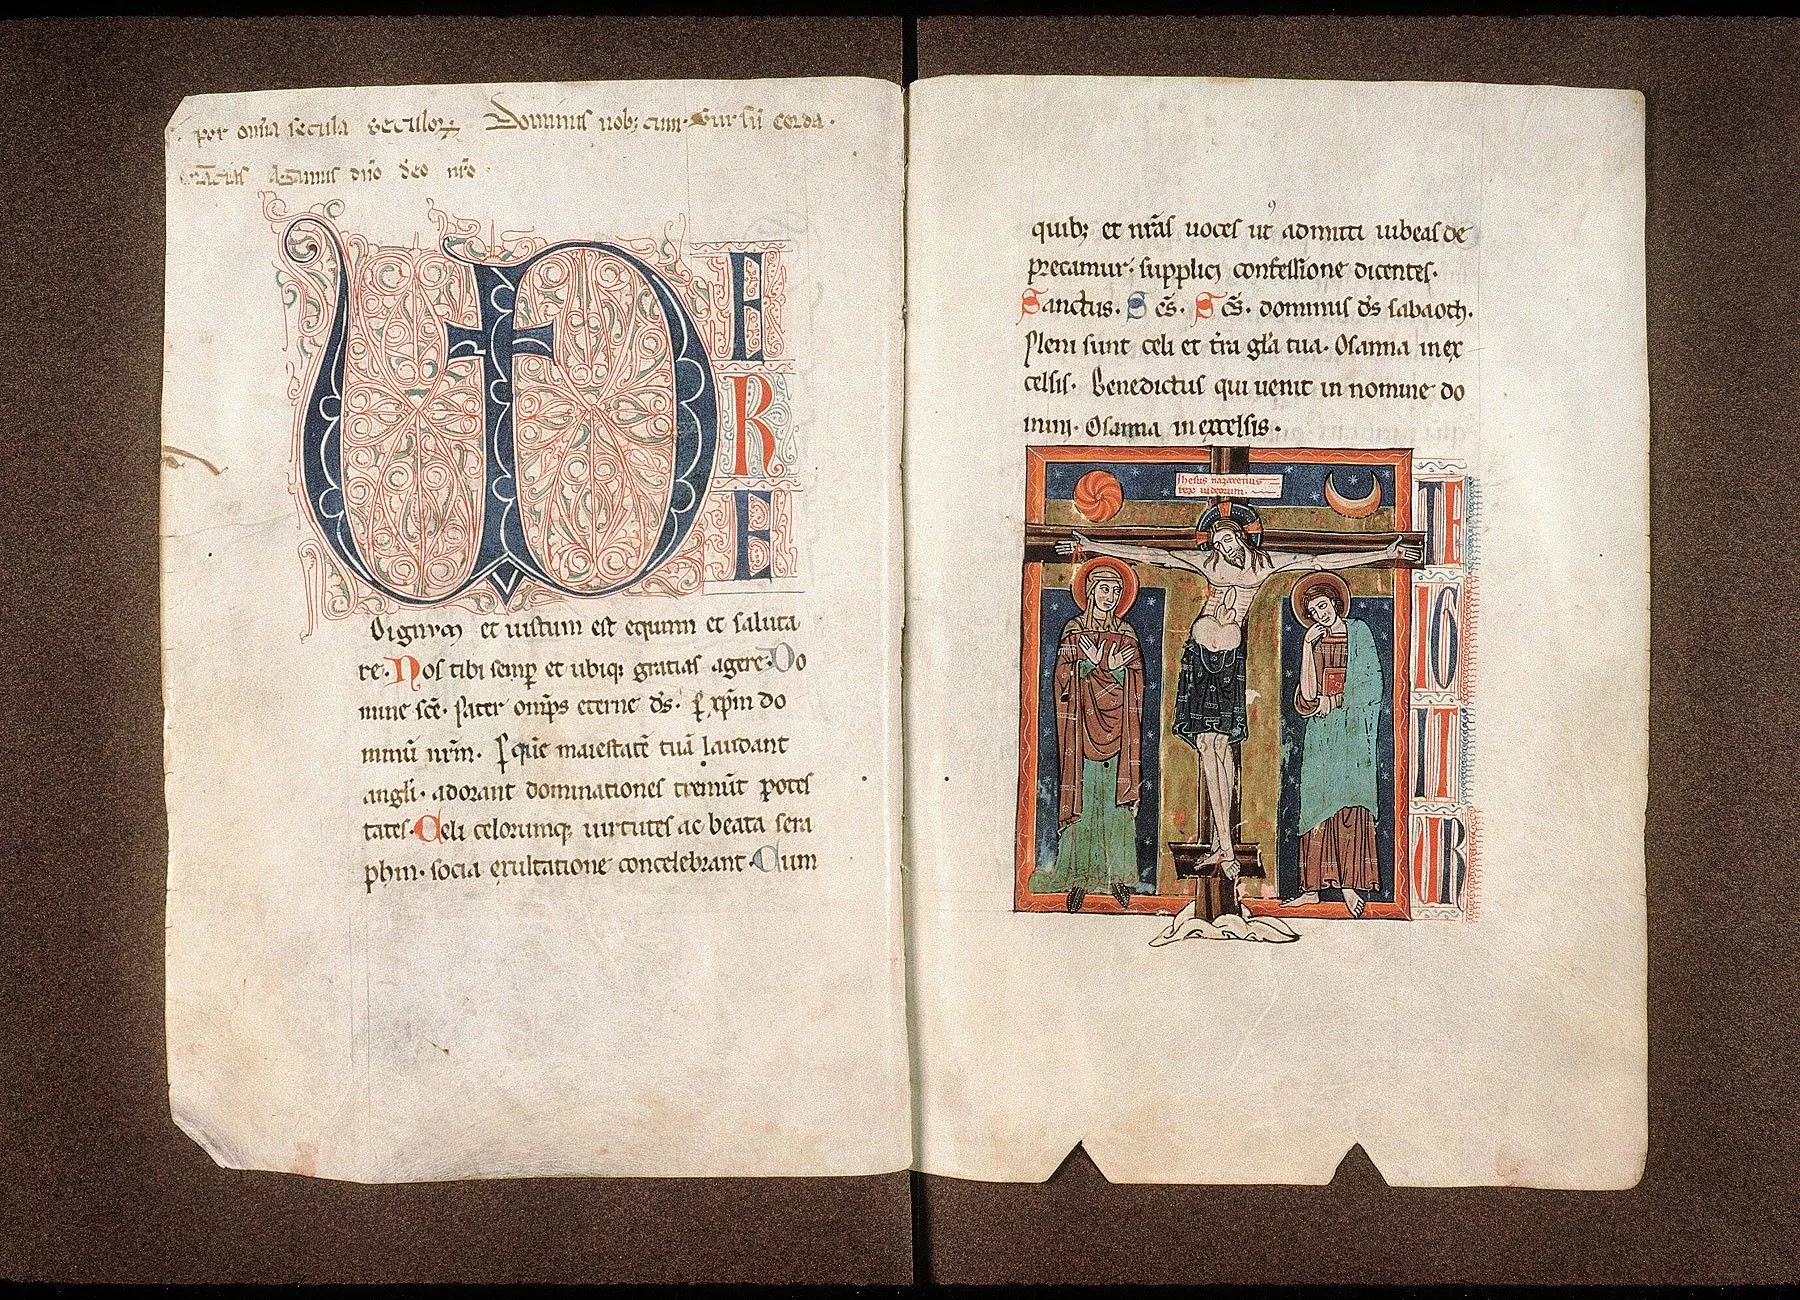 per om̄ia secula seculoꝝ Dominus uob; cum· Sursū corda·
Gr̄acias Agamus dn̄o deo nr̄o·
VERE
dignum et iustum est equum et saluta
re· Nos tibi semꝑ et ubiq; gratias agere· Do
mine sc̄e· pater omīps eterne ds̄· ꝑ xp̄m do
minū nr̄m· ꝑ quē maiestatē tuā laudant
angli· adorant dominationes tremūt potes
tates· Celi celorumq; uirtutes ac beata sera
phin· socia exultatione concelebrant· Cum
quib; et nr̄as uoces ut admitti iubeas de
precamur· supplici confessione dicentes·
Sanctus· Sc̄s· Sc̄s· dominus ds̄ sabaoth·
Pleni sunt celi et tr̄a gl̄a tua· Osanna in ex
celsis· Benedictus qui uenit in nomine do
mini· Osanna in excelsis·
Ihesus nazarenus
rex iudeorum·
TE
IGI
TUR